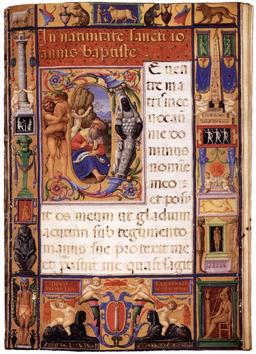 In natiuitate sancti io
annis baptiste
DE uen
tre ma
tris mee
uocauit
me do
minus
nomine
meo:
et posu
it os meum ut gladium
acutum sub tegumento
manus sue protexit me
et posuit me quasi sagi